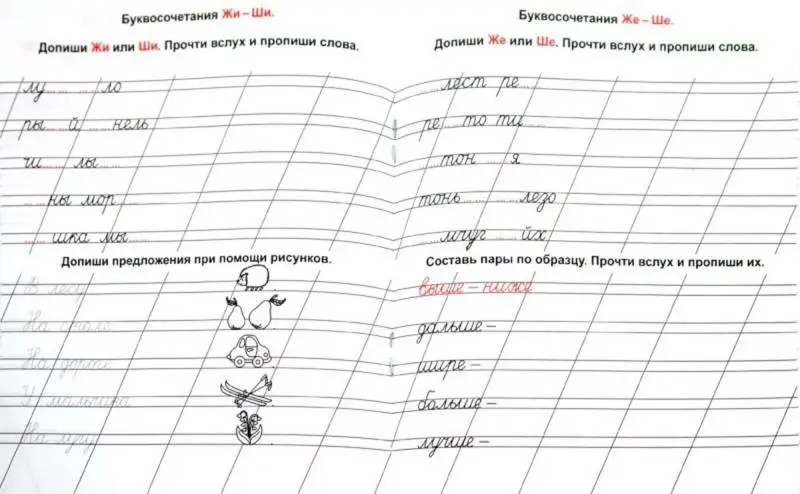 Буквосочетания Жи – Ши.
Допиши Жи или Ши. Прочти вслух и пропиши слова.
лу ... ... ло
ры ... й, ... нель
чи ... лы ...
... ны мор ...
... шка мы ...
Допиши предложения при помощи рисунков.
В лесу
На столе
На дороге
У мальчика
На лугу
Буквосочетания Же – Ше.
Допиши Же или Ше. Прочти вслух и пропиши слова.
... лест ре ...
ре ... то ти ...
... тон ... я
тонь ... ... лезо
... мчуг ... йх
Составь пары по образцу. Прочти вслух и пропиши их.
выше – ниже
дальше –
шире –
больше –
лучше –